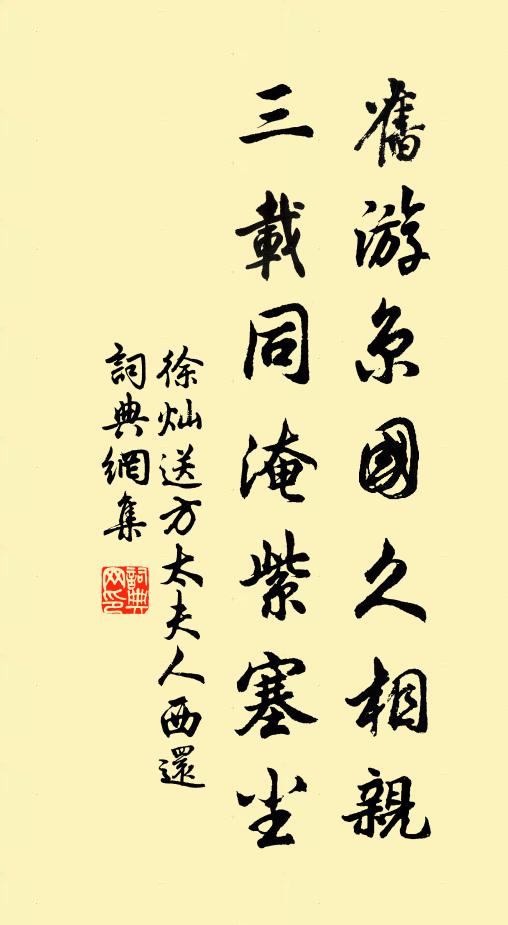 舊游京國久相親
三載同淹紫塞尘
徐灿送方太夫人西還
詞典網集
詞典網印